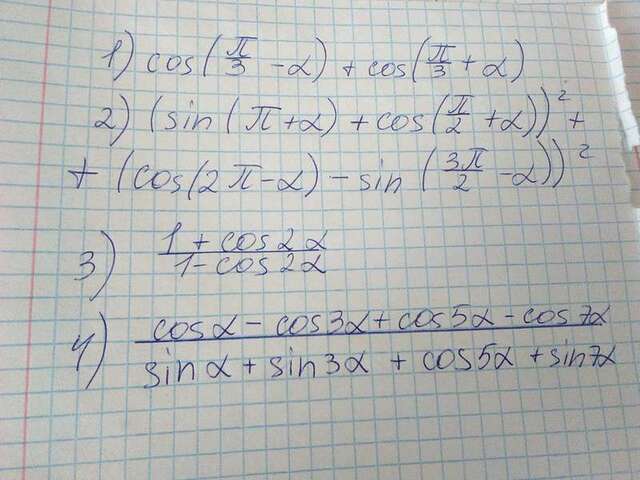 1) cos(π/3 - α) + cos(π/3 + α)
2) (sin(π + α) + cos(π/2 + α))² +
+ (cos(2π - α) - sin(3π/2 - α))²
3) 1 + cos2α
1 - cos2α
4) cosα - cos3α + cos5α - cos7α
sinα + sin3α + cos5α + sin7α